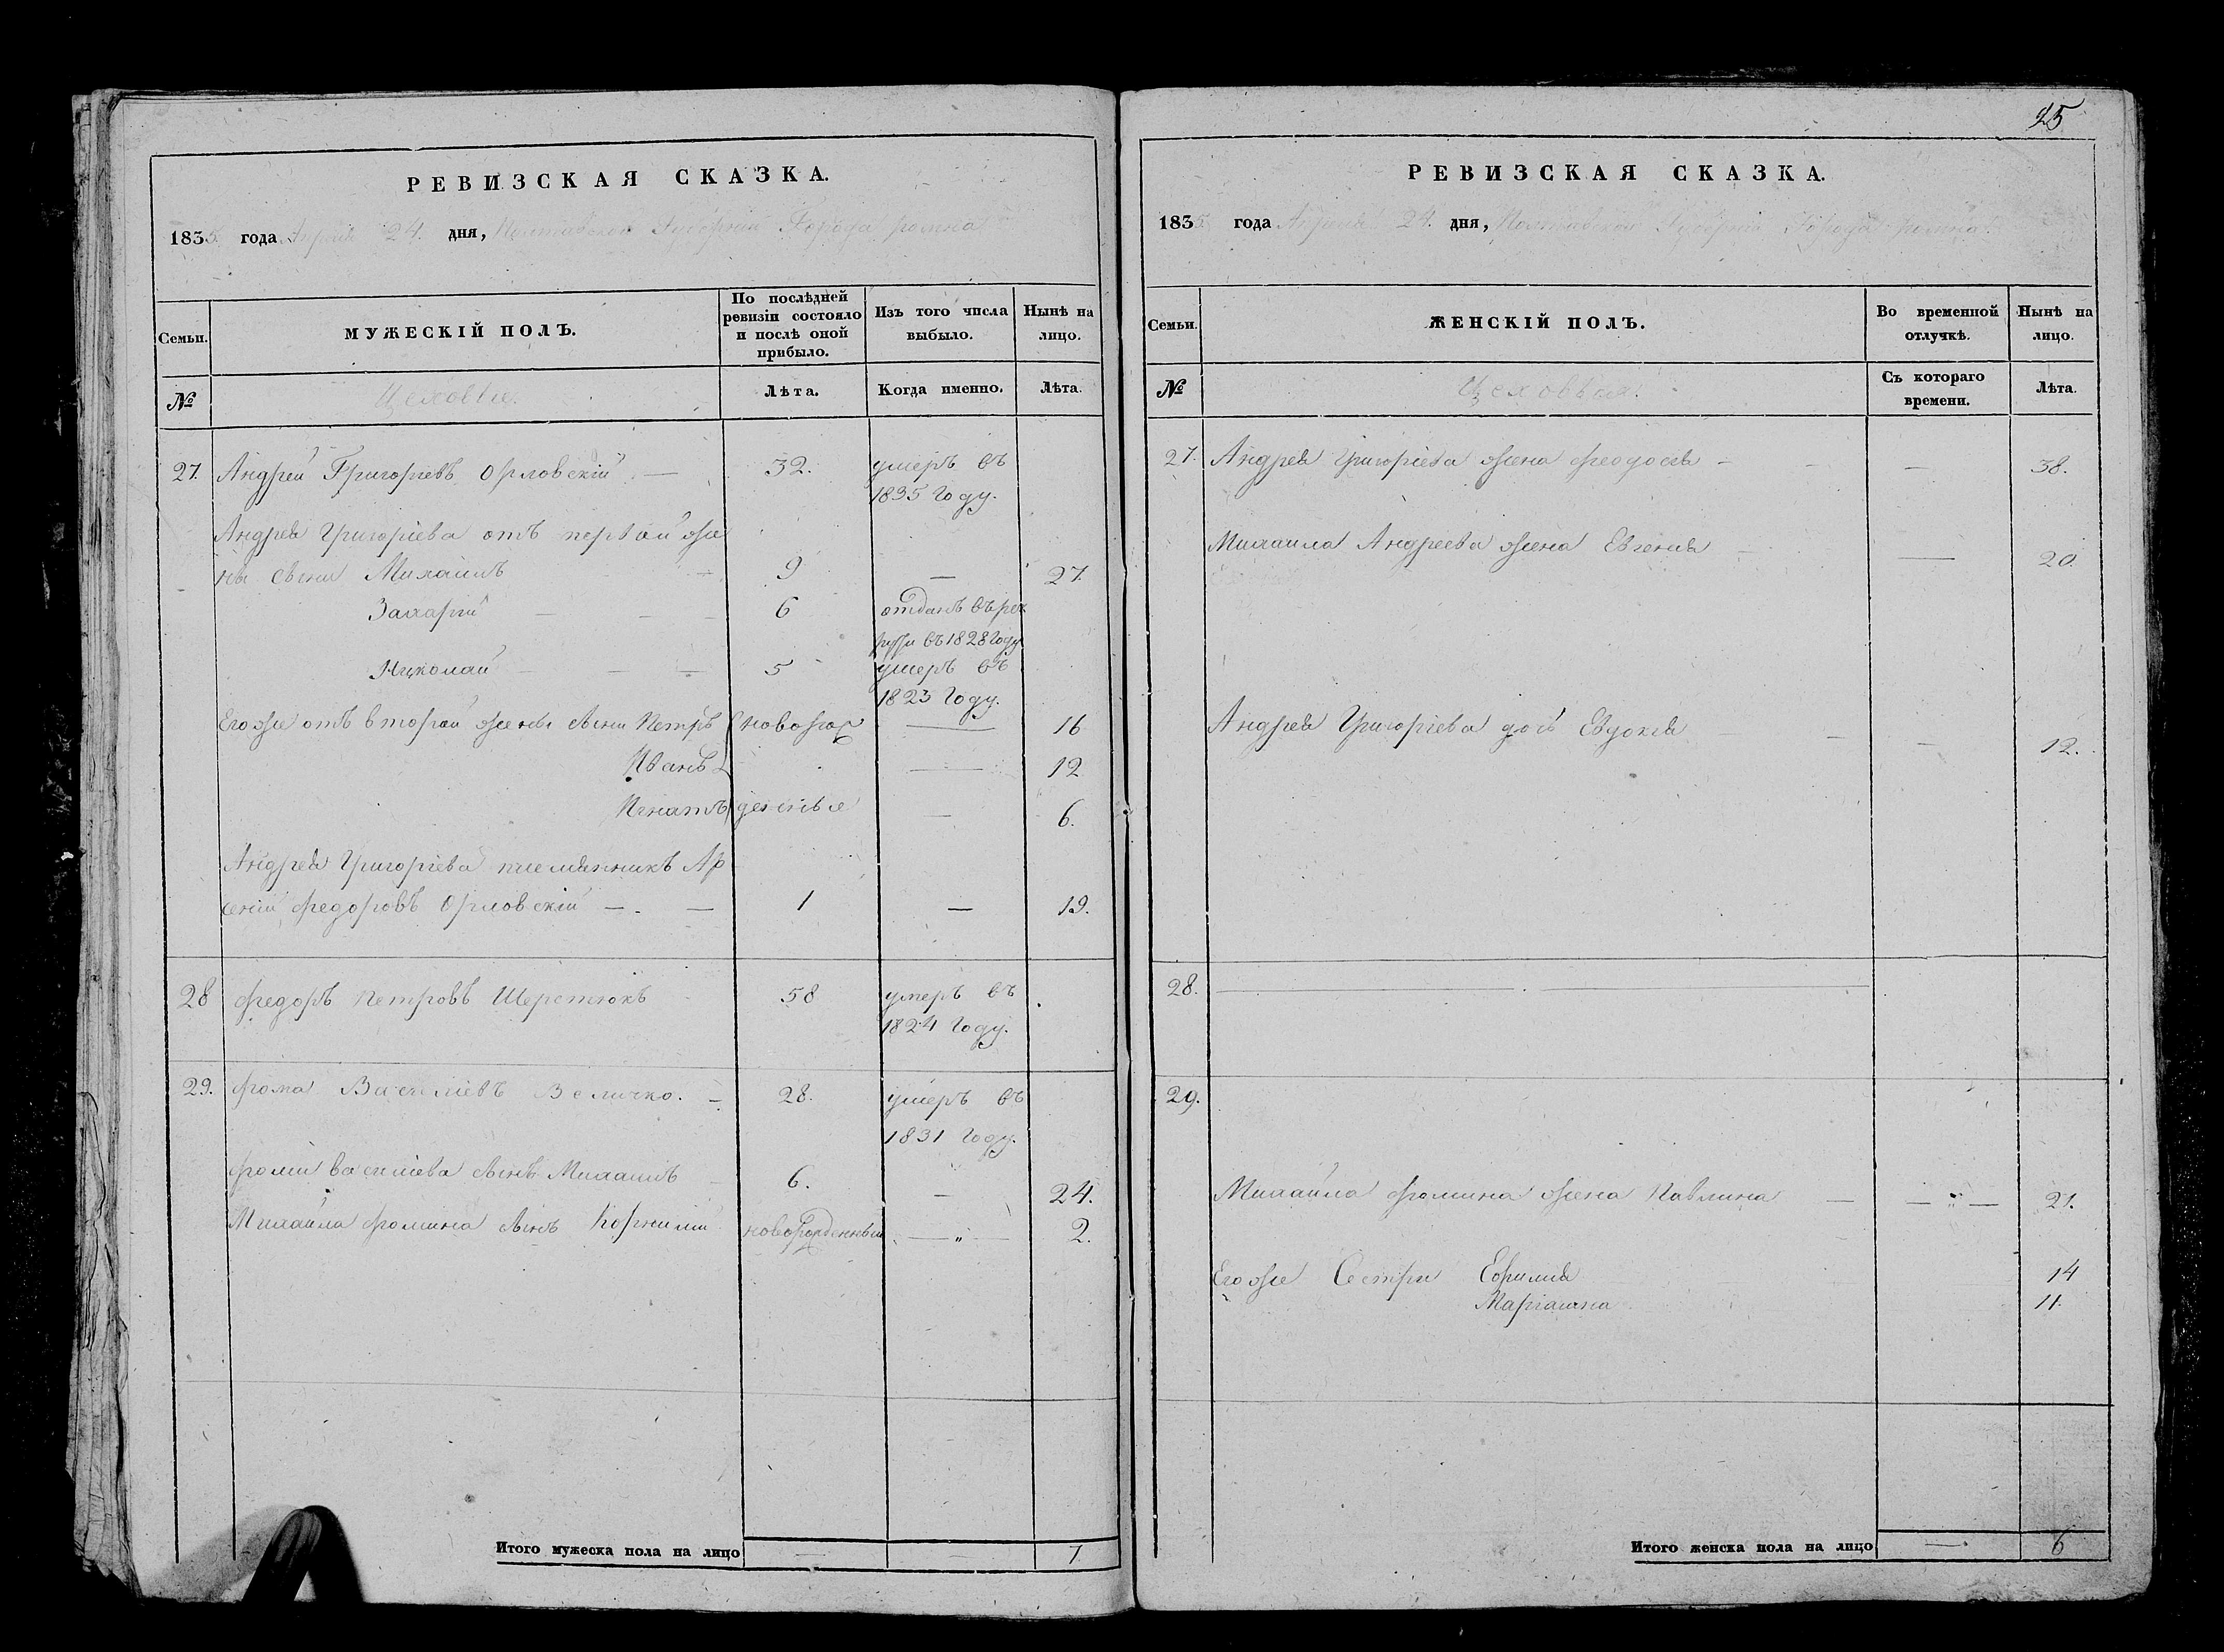 25
РЕВИЗСКАЯ СКАЗКА.
1835 года Апреля 24. дня, Полтавской Губернии Города ромна
Семьи.
МУЖЕСКІЙ ПОЛЪ.
По послѣдней ревизіи состояло и послѣ оной прибыло.
Изъ того числа выбыло.
Нынѣ на лицо.
№
Цеховые.
Лѣта.
Когда именно.
Лѣта.
27. Андрей Григорьевъ Орловскій — 32. умеръ въ
1835 году.
Андрея Григоріева отъ первой же
ны сыни Михаилъ 9 — 27.
Захарій — 6 отданъ въ рек
рути въ 1828 году
Николай — 5 умеръ въ
1823 году.
Его же отъ второй жены сыни Петръ новорож — 16
Иванъ — 12
Игнатъ денные — 6.
Андрея Григоріева племянникъ Ар
сеній Федоровъ Орловскій — 1 — 19.
28 Федоръ Петровъ Шерстюкъ 58 умеръ въ
1824 году.
29. Фома Василіевъ Величко. — 28. умеръ въ
1831 году.
Фоми Василіева сынъ Михаилъ 6. — 24.
Михаила Фомина сынъ Корнилій новорожденный — „ — 2.
Итого мужеска пола на лицо — — 7.
РЕВИЗСКАЯ СКАЗКА.
1835 года Апреля 24. дня, Полтавской Губерніи Города ромна.
Семьи.
ЖЕНСКІЙ ПОЛЪ.
Во временной отлучкѣ.
Нынѣ на лицо.
№
Цеховыя.
Съ котораго времени.
Лѣта.
27. Андрея Григоріева жена Феодосія — — 38.
Михаила Андреева жена Евгенія — 20.
Андрея Григоріева дочь Евдокія — 12.
28. —
29.
Михаила Фомина жена Павлина — „ — 21.
Его же Сестри Ефимія 14
Маріанна 11.
Итого женска пола на лицо — 6